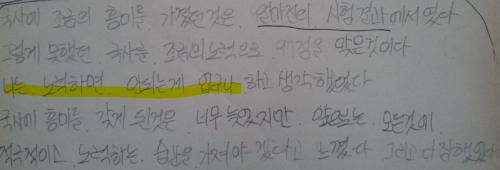 국사에 조금의 흥미를 가졌던것은 얼마전의 시험결과에서 였다
그렇게 못했던 국사를 조금의 노력으로 97점을 맞은것이다
나는 노력하면 안되는게 없구나 하고 생각했었다
국사에 흥미를 갖게 된것은 너무 늦었지만 앞으로는 모든것에
적극적이고 노력하는 습관을 가져야 겠다고 느꼈다 그리고 더 잘했었다